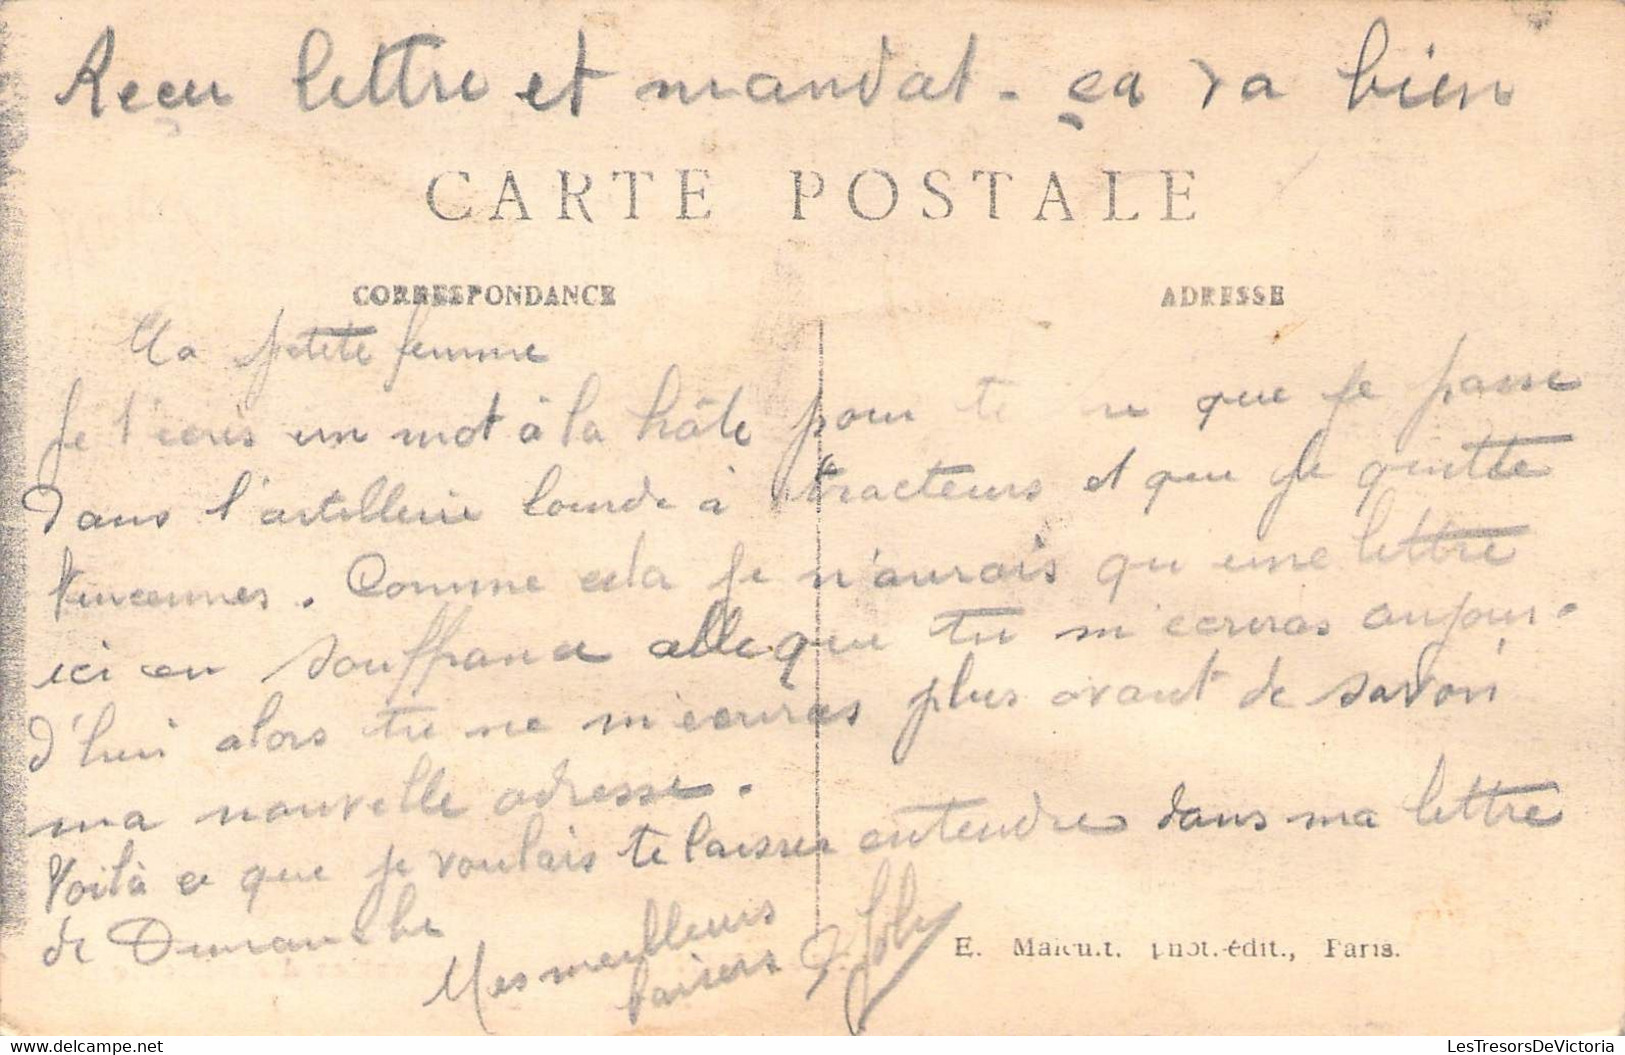 Reçu lettre et mandat - ça va bien
CARTE POSTALE
CORRESPONDANCE
ADRESSE
Ma petite femme
Je t'écris un mot à la hâte pour te que je passe
dans l'artillerie lourde à tracteurs et que je quitte
Vincennes. Comme cela je n'aurais qu une lettre
ici en souffrance celle que tu m'écriras aujour-
d'hui alors tu ne m'écriras plus avant de savoir
ma nouvelle adresse.
Voilà ce que je voulais te laisser entendre dans ma lettre
de Dimanche
Mes meilleurs
baisers
Joly
E. Malcuit, phot.-édit., Paris.
www.delcampe.net
LesTresorsDeVictoria